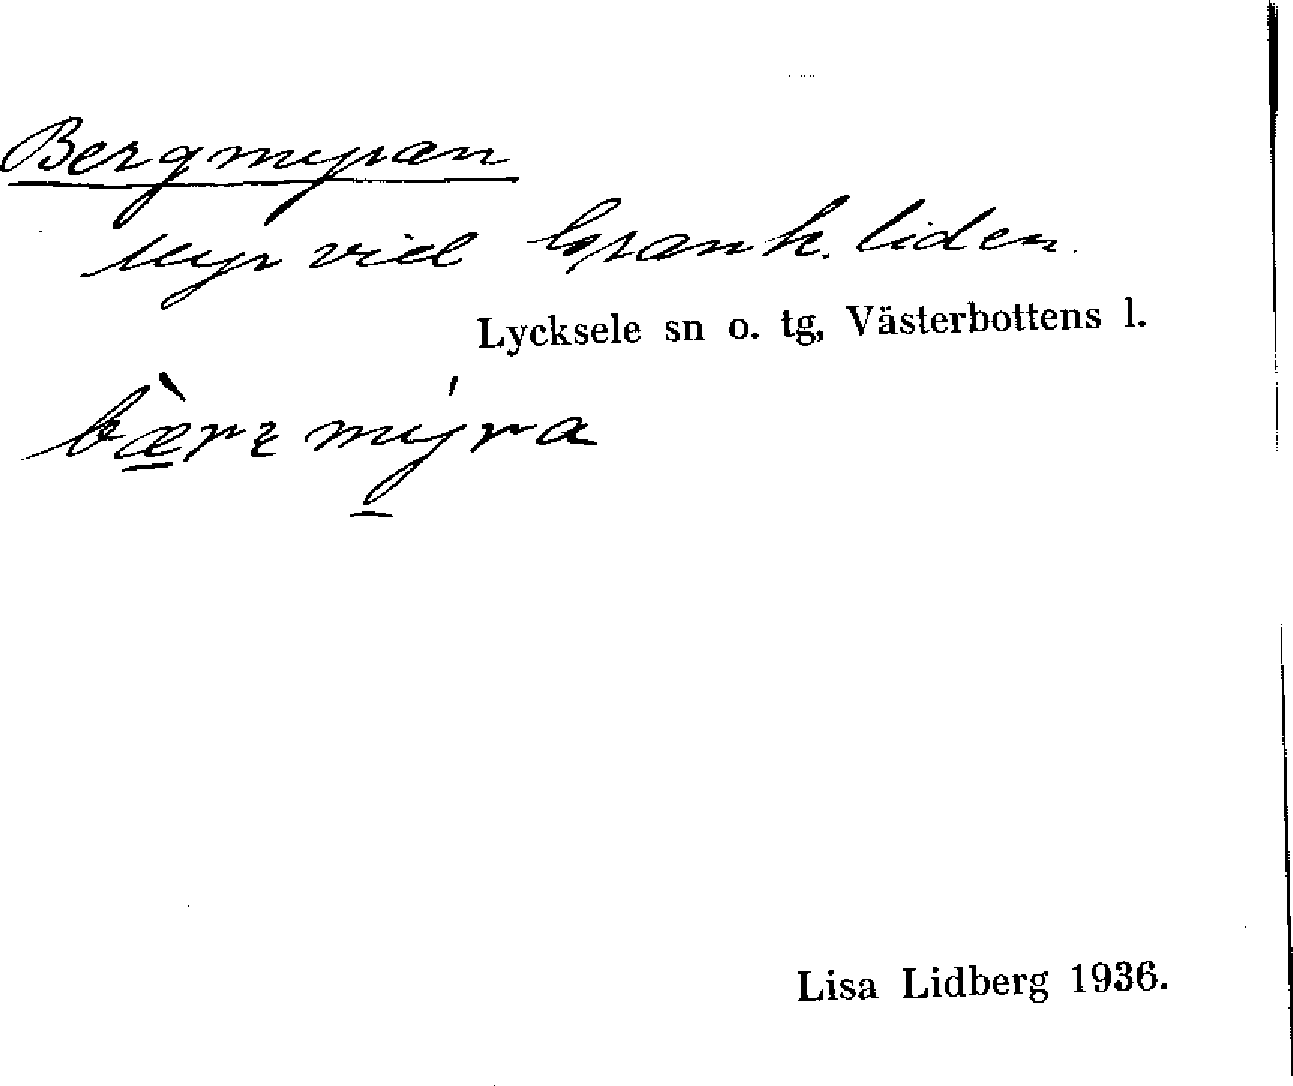 Bergmyran
Myr vid Grank. liden.
Lycksele sn o. tg, Västerbottens l.
bær<sub></sub>myra
Lisa Lidberg 1936.